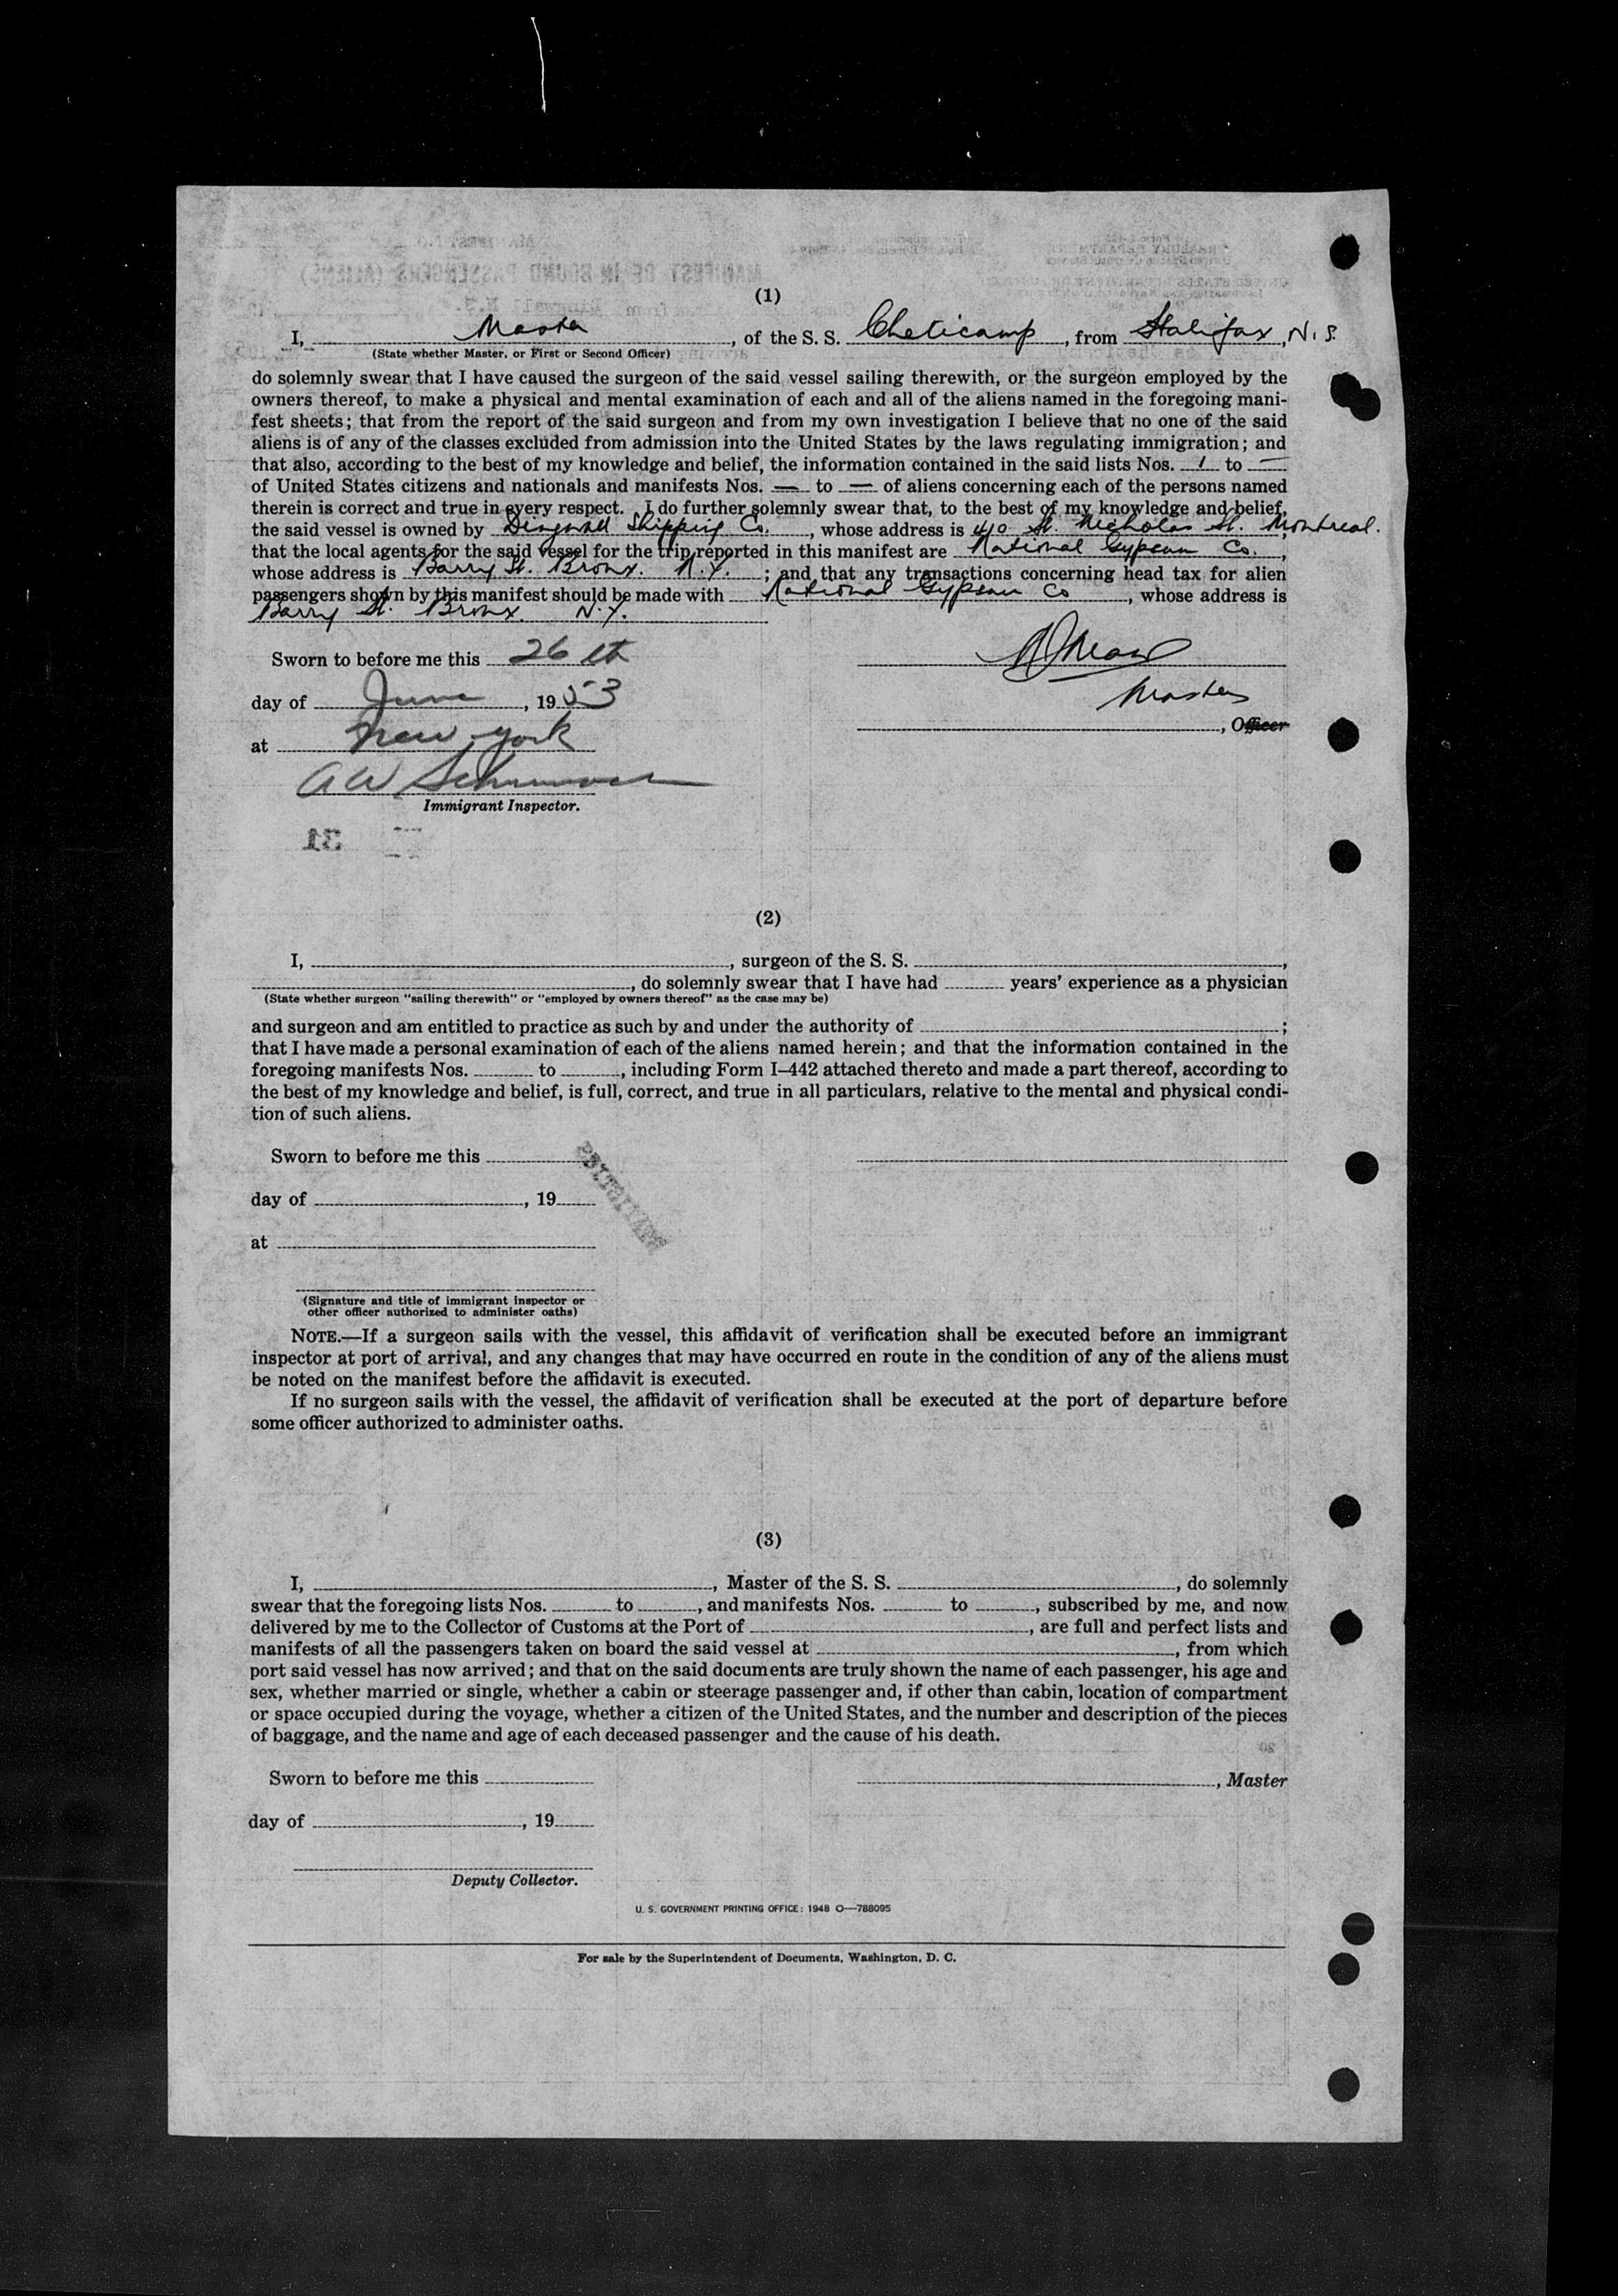 (1)
I, Master, of the S. S. Cheticamp, from Halifax, N. S.
(State whether Master, or First or Second Officer)
do solemnly swear that I have caused the surgeon of the said vessel sailing therewith, or the surgeon employed by the
owners thereof, to make a physical and mental examination of each and all of the aliens named in the foregoing mani-
fest sheets; that from the report of the said surgeon and from my own investigation I believe that no one of the said
aliens is of any of the classes excluded from admission into the United States by the laws regulating immigration; and
that also, according to the best of my knowledge and belief, the information contained in the said lists Nos. 1 to —
of United States citizens and nationals and manifests Nos. — to — of aliens concerning each of the persons named
therein is correct and true in every respect. I do further solemnly swear that, to the best of my knowledge and belief,
the said vessel is owned by Dingwall Shipping Co., whose address is 410 St. Nicholas St. Montreal.;
that the local agents for the said vessel for the trip reported in this manifest are National Gypsum Co.,
whose address is Barry St. Bronx. N.Y.; and that any transactions concerning head tax for alien
passengers shown by this manifest should be made with National Gypsum Co, whose address is
Barry St. Bronx. N.Y.
Sworn to before me this 26th
day of June, 1953
Master
, Officer
at New York
A W
Immigrant Inspector.
31
(2)
I, , surgeon of the S. S. ,
, do solemnly swear that I have had years' experience as a physician
(State whether surgeon "sailing therewith" or "employed by owners thereof" as the case may be)
and surgeon and am entitled to practice as such by and under the authority of ;
that I have made a personal examination of each of the aliens named herein; and that the information contained in the
foregoing manifests Nos. to , including Form I–442 attached thereto and made a part thereof, according to
the best of my knowledge and belief, is full, correct, and true in all particulars, relative to the mental and physical condi-
tion of such aliens.
Sworn to before me this
day of , 19
at
(Signature and title of immigrant inspector or
other officer authorized to administer oaths)
NOTE.—If a surgeon sails with the vessel, this affidavit of verification shall be executed before an immigrant
inspector at port of arrival, and any changes that may have occurred en route in the condition of any of the aliens must
be noted on the manifest before the affidavit is executed.
If no surgeon sails with the vessel, the affidavit of verification shall be executed at the port of departure before
some officer authorized to administer oaths.
(3)
I, , Master of the S. S. , do solemnly
swear that the foregoing lists Nos. to , and manifests Nos. to , subscribed by me, and now
delivered by me to the Collector of Customs at the Port of , are full and perfect lists and
manifests of all the passengers taken on board the said vessel at , from which
port said vessel has now arrived; and that on the said documents are truly shown the name of each passenger, his age and
sex, whether married or single, whether a cabin or steerage passenger and, if other than cabin, location of compartment
or space occupied during the voyage, whether a citizen of the United States, and the number and description of the pieces
of baggage, and the name and age of each deceased passenger and the cause of his death.
Sworn to before me this
, Master
day of , 19
Deputy Collector.
U. S. GOVERNMENT PRINTING OFFICE: 1948 O—788095
For sale by the Superintendent of Documents, Washington, D. C.